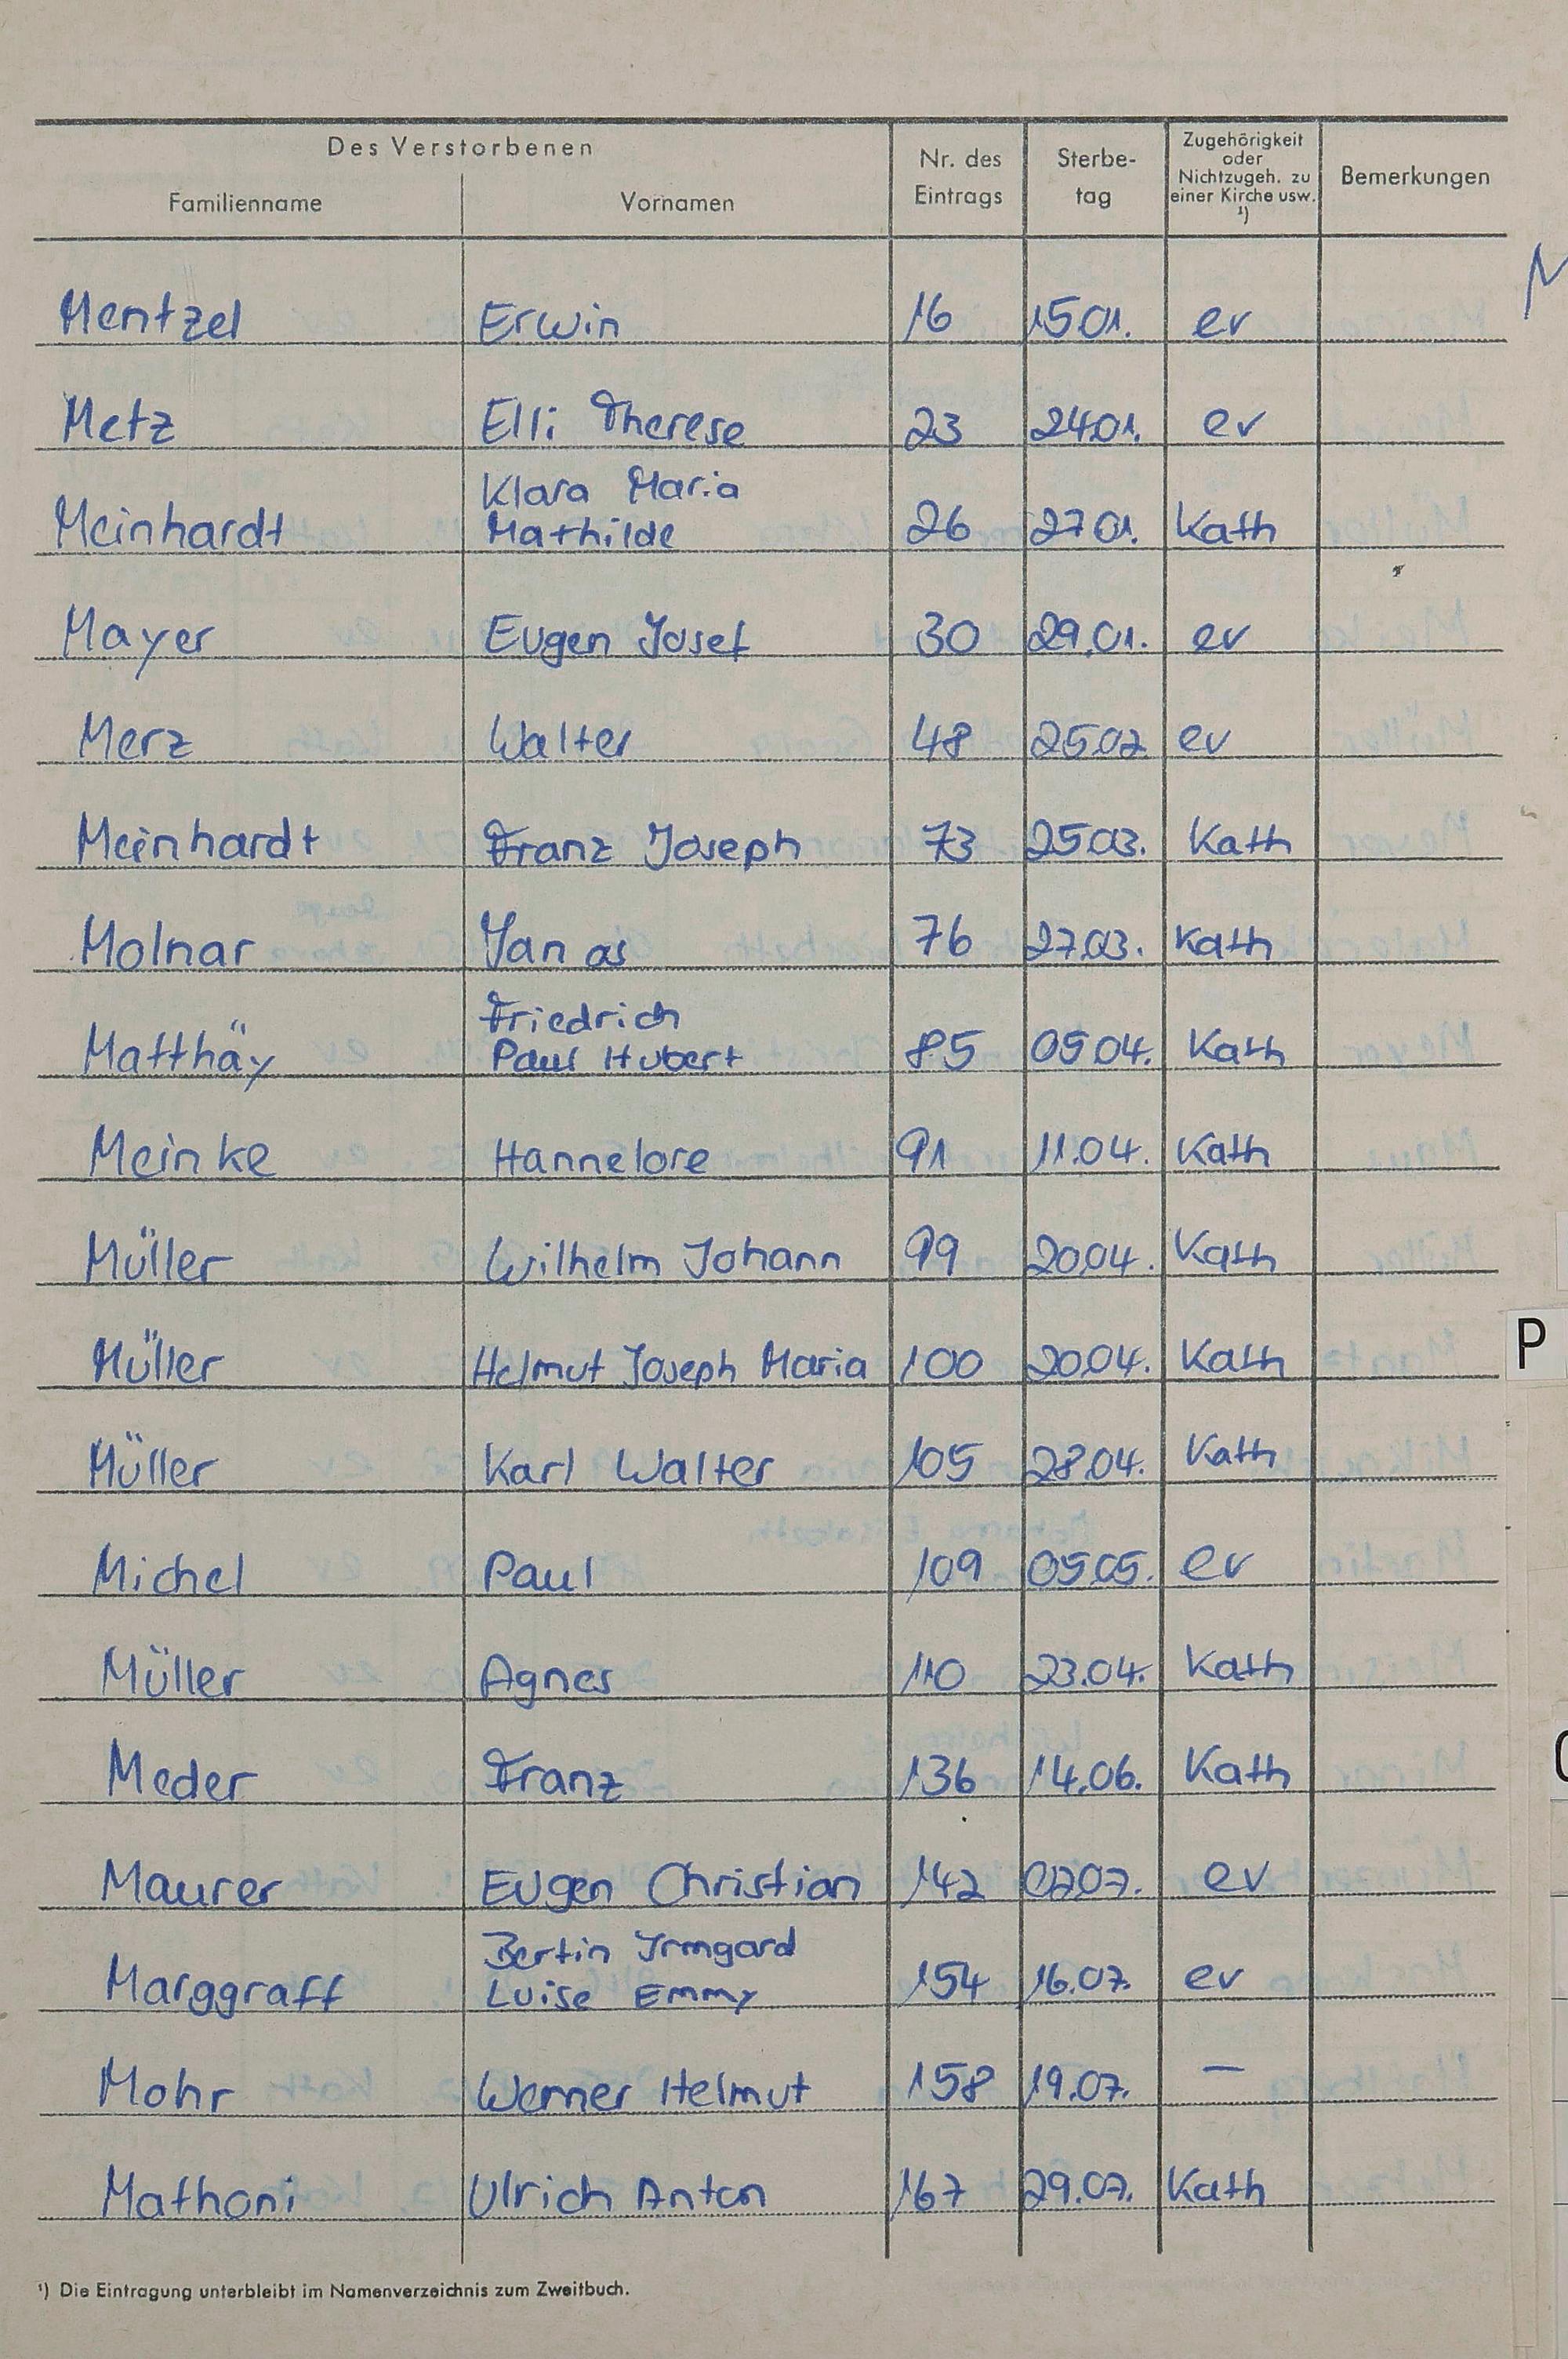 Des Verstorbenen
Familienname Vornamen Nr. des Eintrags Sterbe-tag Zugehörigkeit oder Nichtzugeh. zu einer Kirche usw. ¹) Bemerkungen
Mentzel Erwin 16 15.01. ev
Metz Elli Therese 23 24.01. ev
Klara Maria
Meinhardt Mathilde 26 27.01. Kath
Mayer Eugen Josef 30 29.01. ev
Merz Walter 48 25.02. ev
Meinhardt Franz Joseph 73 25.03. Kath
Molnar Janos 76 27.03. Kath
Friedrich
Matthäy Paul Hubert 85 05.04. Kath
Meinke Hannelore 91 11.04. Kath
Müller Wilhelm Johann 99 20.04. Kath
Müller Helmut Joseph Maria 100 20.04. Kath
P
Müller Karl Walter 105 28.04. Kath
Michel Paul 109 05.05. ev
Müller Agnes 110 23.04. Kath
Meder Franz 136 14.06. Kath
Maurer Eugen Christian 142 ev
Bertin Irmgard
Marggraff Luise Emmy 154 16.07. ev
Mohr Werner Helmut 158 19.07. —
Mathoni Ulrich Anton 167 29.07. Kath
¹) Die Eintragung unterbleibt im Namenverzeichnis zum Zweitbuch.